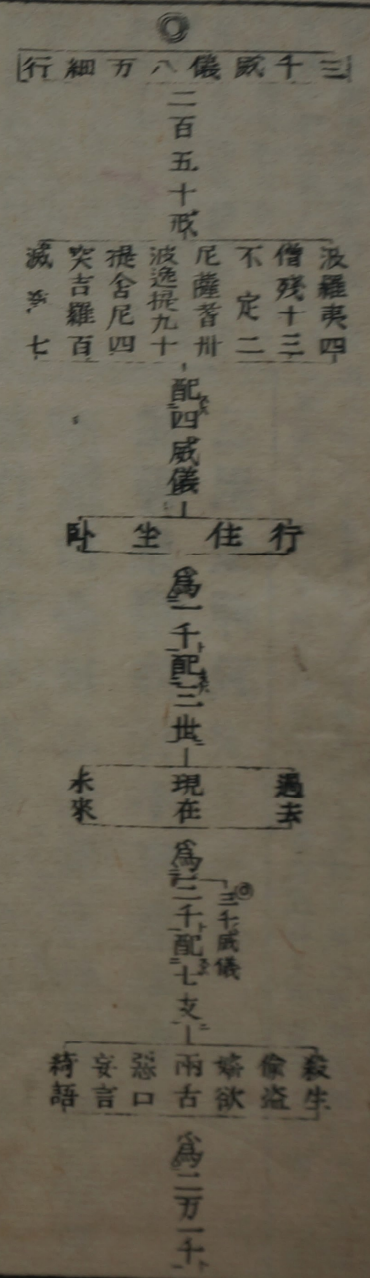 三千威儀八万細行
二百五十戒
波羅夷四
僧残十三
不定二
尼薩耆卅
波逸提九十
提舍尼四
突吉羅百
滅諍七
配四威儀
行住坐臥
為一千配三世
過去
現在
未來
為三千配七支
三千威儀
殺生
偸盗
婬欲
兩舌
惡口
妄言
綺語
為二万一千